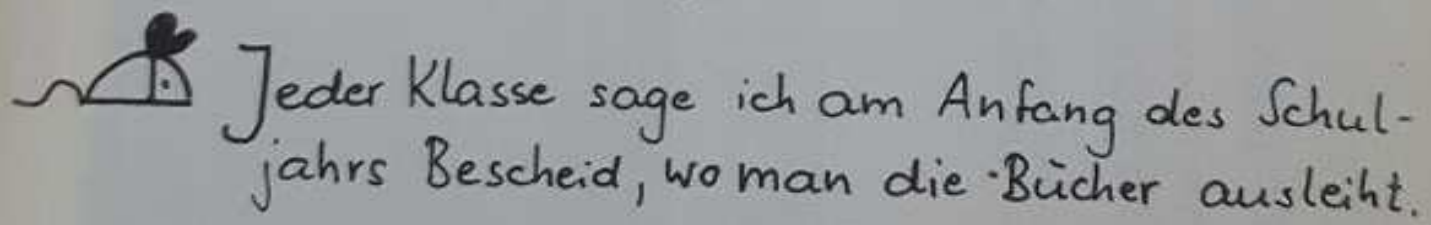 Jeder Klasse sage ich am Anfang des Schul-
jahrs Bescheid, wo man die Bücher ausleiht.